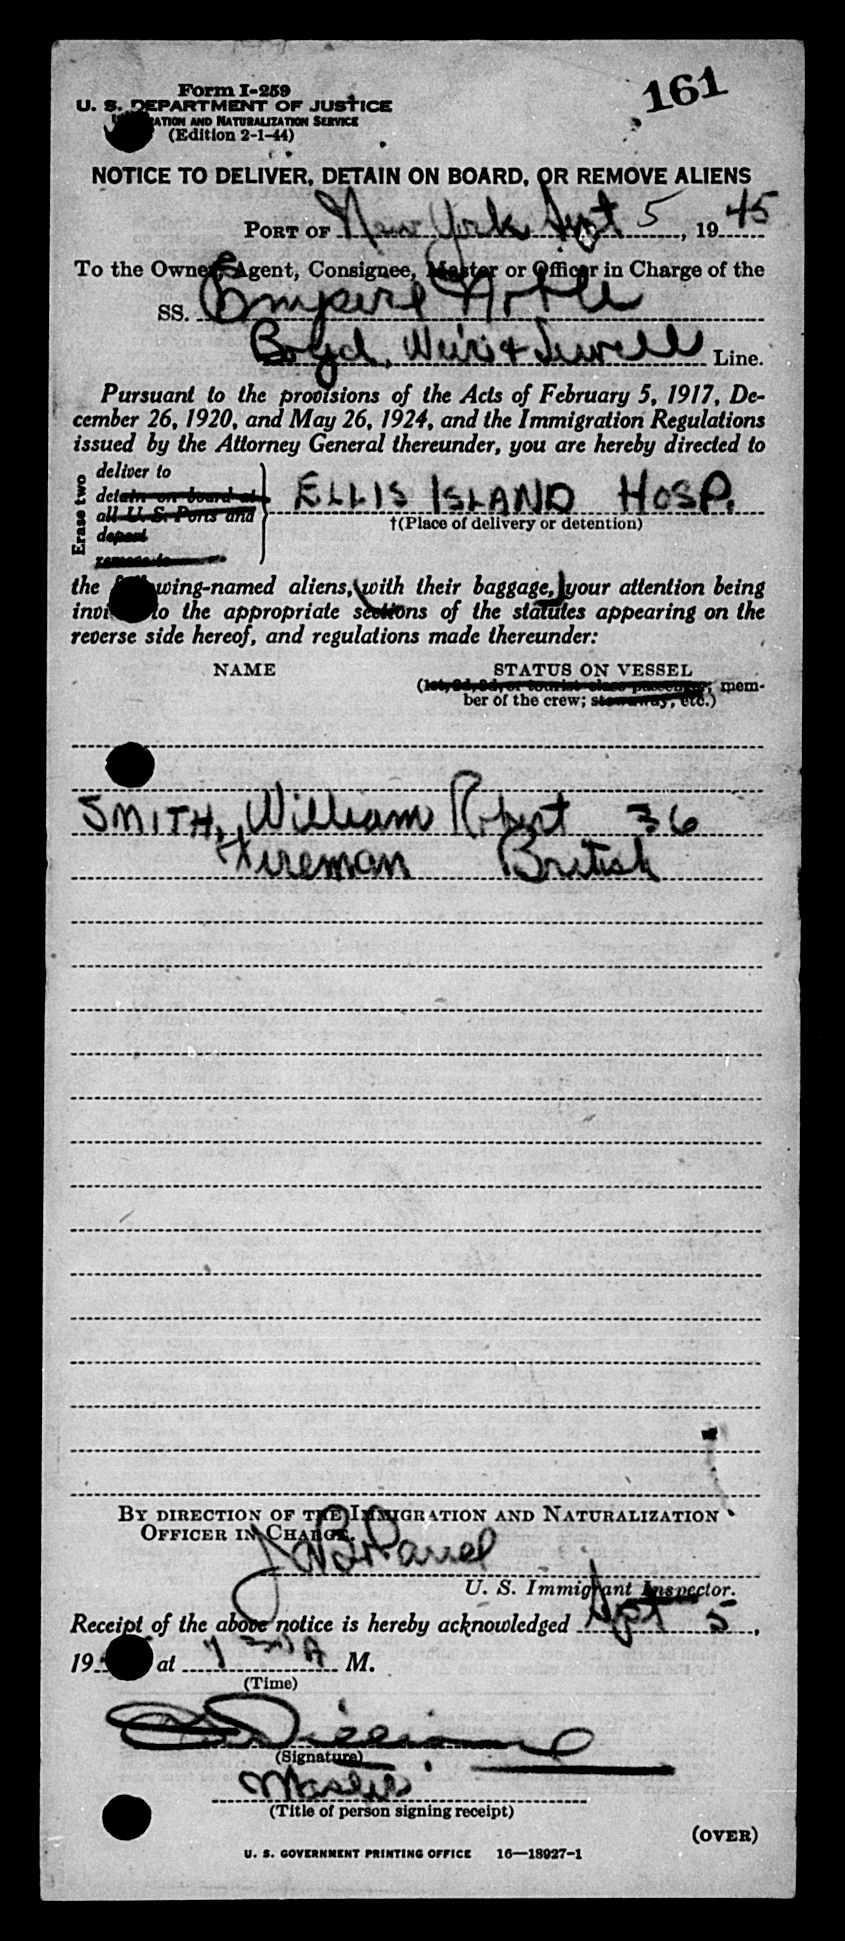 161
Form I-259
U. S. DEPARTMENT OF JUSTICE
NATURALIZATION SERVICE
(Edition 2-1-44)
NOTICE TO DELIVER, DETAIN ON BOARD, OR REMOVE ALIENS
PORT OF New York Sept 5, 1945
To the Owner, Agent, Consignee, Master or Officer in Charge of the
SS. Empire Noble
Boyd, Weir & Sewell Line.
Pursuant to the provisions of the Acts of February 5, 1917, De-
cember 26, 1920, and May 26, 1924, and the Immigration Regulations
issued by the Attorney General thereunder, you are hereby directed to
Erase two
deliver to
detain on board at
all U. S. Ports and
deport
remove to
ELLIS ISLAND HOSP.
†(Place of delivery or detention)
the following-named aliens, with their baggage, your attention being
to the appropriate sections of the statutes appearing on the
reverse side hereof, and regulations made thereunder:
NAME STATUS ON VESSEL
(1st, 2d, 3d, or tourist class passenger; mem-
ber of the crew; stowaway, etc.)
SMITH, William Robert 36
Fireman British
BY DIRECTION OF THE IMMIGRATION AND NATURALIZATION
OFFICER IN CHARGE.
U. S. Immigrant Inspector.
Receipt of the above notice is hereby acknowledged Sept 5,
19 at M.
(Time)
(Signature)
Master
(Title of person signing receipt)
(OVER)
U. S. GOVERNMENT PRINTING OFFICE 16—18927-1